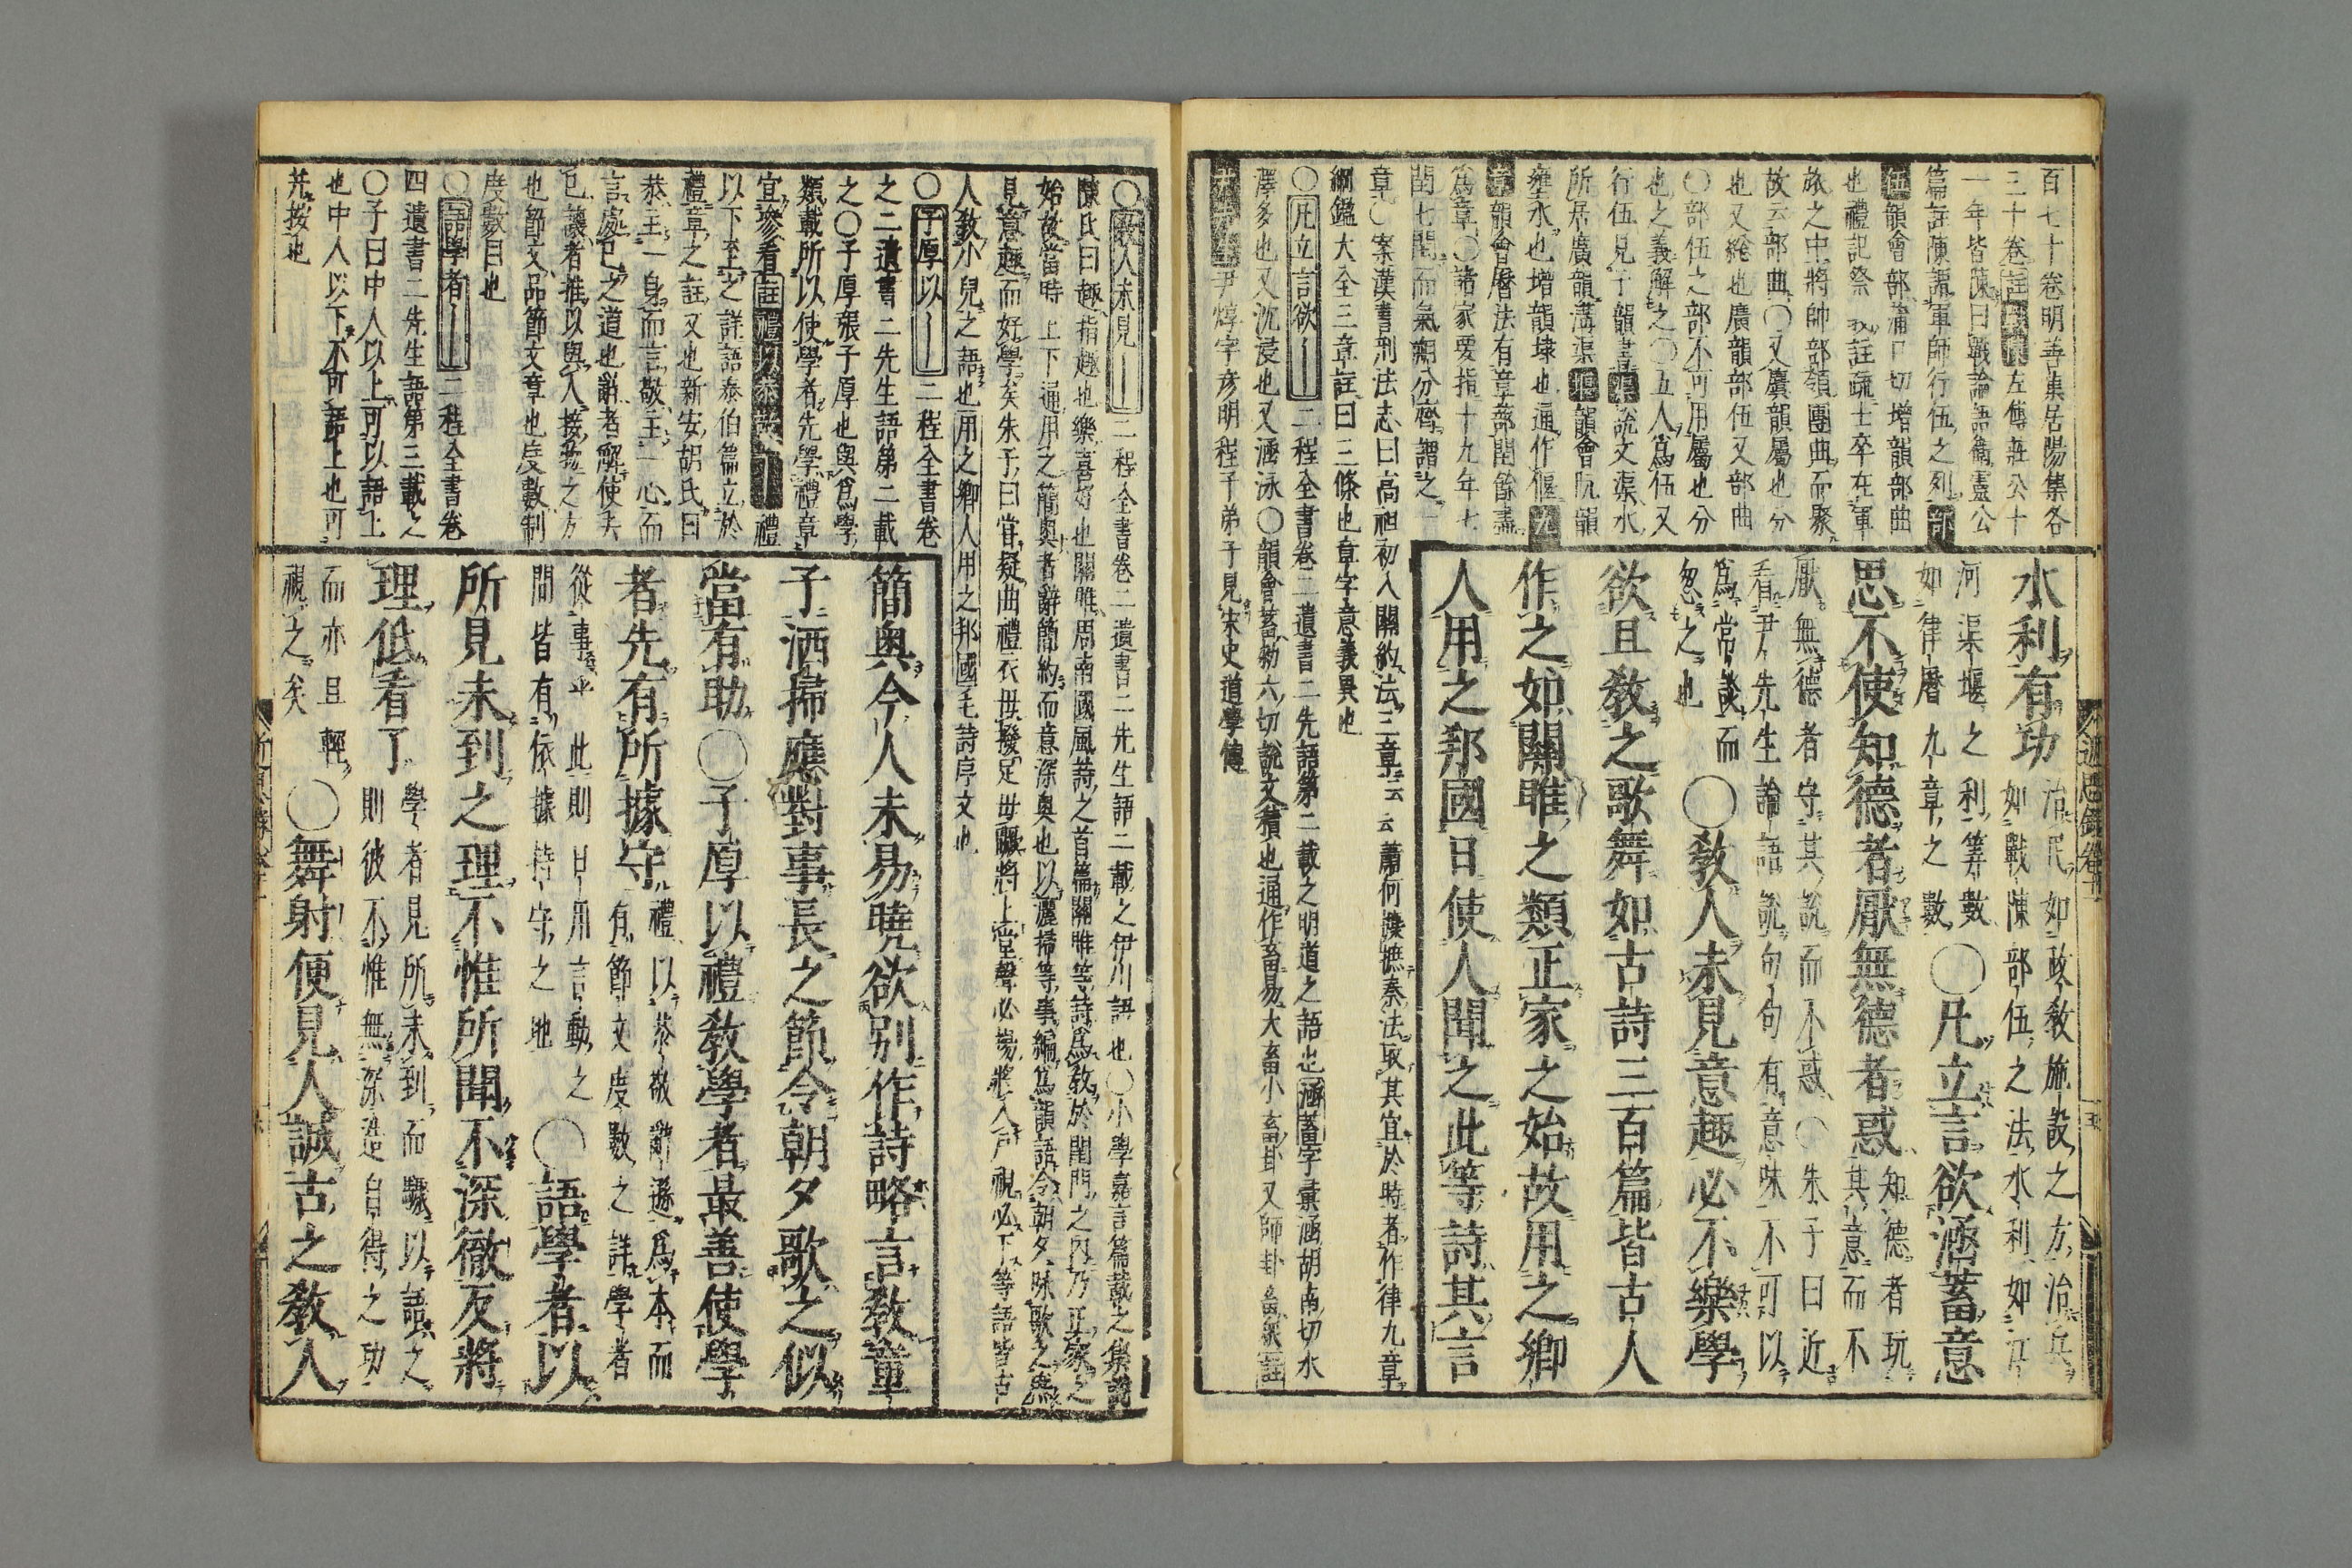 百七十卷明善集居陽集各
三十卷註左傳莊公十
一年皆陳曰戰論語衞靈公
篇註陳謂軍師行伍之列部
伍韻會部蒲口切增韻部曲
也禮記祭義註疏士卒在軍
旅之中將帥部領團曲而聚
故云部曲〇又廣韻屬也分
也又綂也廣韻部伍又部曲
〇部伍之部不可用屬也分
也之義解之〇五人爲伍又
行伍見于韻書渠說文渠水
所居廣韻溝渠堰韻會阮韻
壅水也增韻埭也通作偃九
章韻會曆法有章蔀閏餘盡
爲章〇諸家要指十九年七
閏七閏而氣朔分齊謂之一
章〇案漢書刑法志曰高祖初入關約法三章云云蕭何攈摭秦法取其宜於時者作律九章
綱鑑大全三章註曰三條也章字意義異也
〇凡立言欲――二程全書卷二遺書二先語第二載之明道之語也涵蓄字彙涵胡南切水
澤多也又沉浸也又涵泳〇韻會蓄勑六切說文積也通作畜易大畜小畜卦又師卦畜衆註
尹焞字彦明程子弟子見宋史道學傳
水利有功治民如政敎施設之方治兵
如戰陳部伍之法水利如江
河渠堰之利筭數
如律曆九章之數〇凡立言欲涵蓄意
思不使知德者厭無德者惑知德者玩
其意而不
厭無德者守其說而不惑〇朱子曰近
看尹先生論語說句句有意味不可以
爲常談而
忽之也〇敎人未見意趣必不樂學
欲且敎之歌舞如古詩三百篇皆古人
作之如關雎之類正家之始故用之鄉
人用之邦國日使人聞之此等詩其言
〇敎人未見――二程全書卷二遺書二先生語二載之伊川語也〇小學嘉言篇載之集說
陳氏曰趣指趣也樂喜好也關雎周南國風詩之首篇關雎等詩爲敎於閨門之內乃正家之
始故當時上下通用之簡奧者辭簡約而意深奧也以灑掃等事編爲韻語令朝夕咏歌之庶
見意趣而好學矣朱子曰嘗疑曲禮衣毋撥足毋蹶將上堂聲必揚將入戶視必下等語皆古
人敎小兒之語也用之鄉人用之邦國毛詩序文也
〇子厚以――二程全書卷
之二遺書二先生語第二載
之〇子厚張子厚也與爲學
類載所以使學者先學禮章
宜參看註禮以恭敬――禮
以下至之詳語泰伯篇立於
禮章之註又也新安胡氏曰
恭主一身而言敬主一心而
言處已之道也辭者解使去
已讓者推以與人接物之方
也節文品節文章也度數制
度數目也
〇語學者――二程全書卷
四遺書二先生語第三載之
〇子曰中人以上可以語上
也中人以下不可語上也可
幷按也
簡奧今人未易曉欲別作詩略言敎童
子洒掃應對事長之節令朝夕歌之似
當有助〇子厚以禮敎學者最善使學
者先有所據守禮以恭敬辭遜爲本而
有節文度數之詳學者
從事乎此則日用言動之
間皆有依據持守之地〇語學者以
所見未到之理不惟所聞不深徹反將
理低看了學者見所未到而驟以語之
則彼不惟無深造自得之功
而亦且輕
視之矣〇舞射便見人誠古之敎人